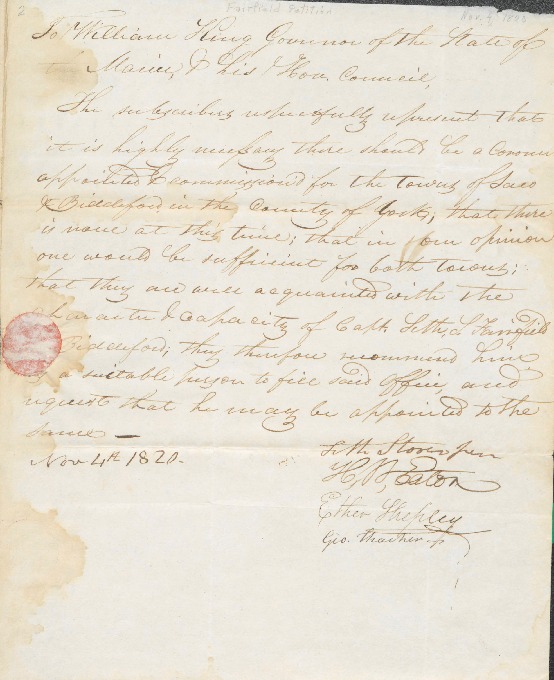 2
Fairfield Petition
Nov. 4, 1820
To William King Govenor of the State of
Maine, & his Hon. Council,
The subscribers respectfully represent that
it is highly necessary there should be a Coroner
appointed & commissioned for the towns of Saco
& Biddeford in the County of York; that there
is none at this time; that in our opinion
one would be sufficient for both towns;
that they are well acquainted with the
character & capacity of Capt. Seth S. Fairfield
Biddeford; they therefore recommend him
as a suitable person to fill said office, and
request that he may be appointed to the
same —
Nov 4th 1820.
Seth Storer jun
H B Eaton
Ether Shepley
Geo. Thacher Jr